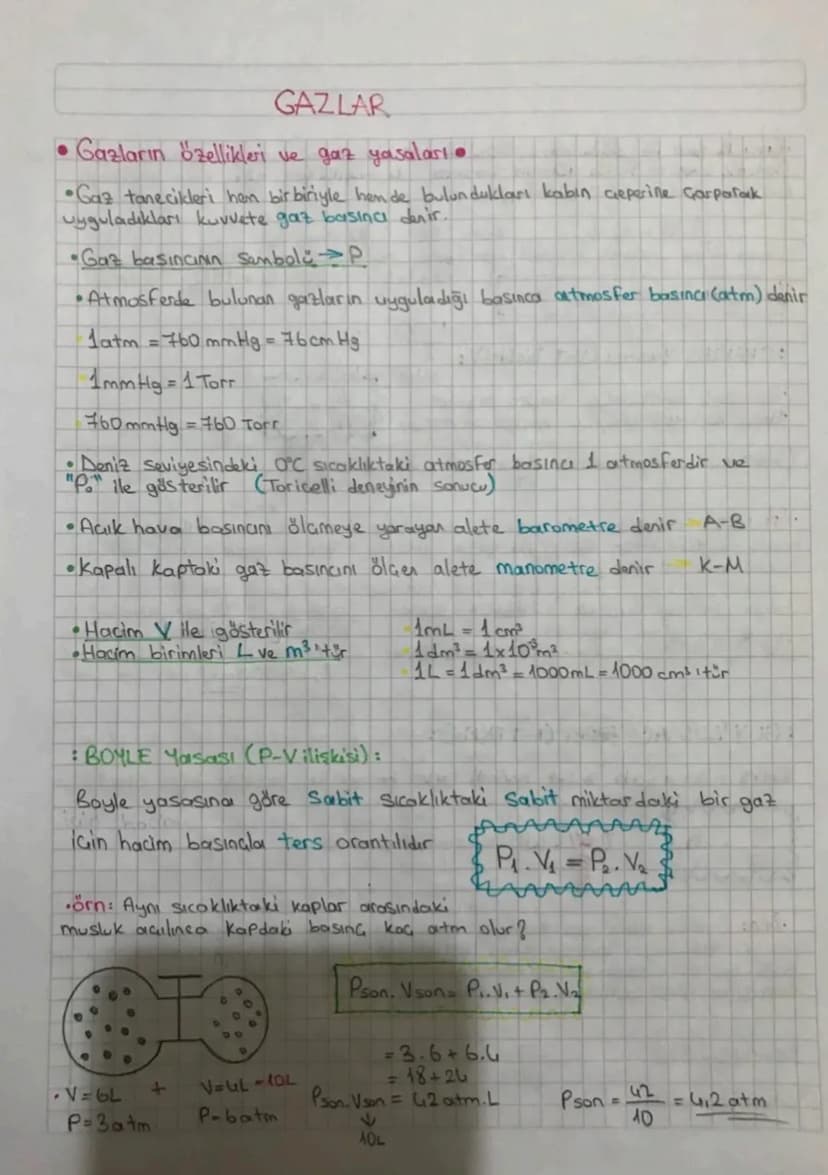 GAZLAR
• Gazların özellikleri ve gaz yasaları •
• Gaz tanecikleri hem birbiriyle hem de bulundukları kabın çeperine çarparak
uyguladıkları kuvvete gaz basıncı denir.
• Gaz basıncının sembolü → P
• Atmosferde bulunan gazların uyguladığı basınca atmosfer basıncı (atm) denir
1 atm = 760 mmHg = 76 cm Hg
1 mmHg = 1 Torr
760 mmHg = 760 Torr
• Deniz seviyesindeki 0°C sıcaklıktaki atmosfer basıncı 1 atmosferdir ve
"P₀" ile gösterilir (Toricelli deneyinin sonucu)
• Açık hava basıncını ölçmeye yarayan alete barometre denir A-B
• Kapalı kaptaki gaz basıncını ölçen alete manometre denir K-M
• Hacim V ile gösterilir
• Hacim birimleri L ve m³'tür
1mL = 1 cm³
1 dm³ = 1x10⁻³m³
1L = 1 dm³ = 1000mL = 1000 cm³'tür
: BOYLE Yasası (P-V ilişkisi) :
Boyle yasasına göre Sabit sıcaklıktaki Sabit miktardaki bir gaz
için hacim basınçla ters orantılıdır
P₁ . V₁ = P₂ . V₂
• örn: Aynı sıcaklıktaki kaplar arasındaki
musluk açılınca kapdaki basınç kaç atm olur?
Pson . Vson = P₁.V₁ + P₂.V₂
= 3.6 + 6.4
= 18 + 24
Pson.Vson = 42 atm.L
↓
10L
Pson = 42/10 = 4,2 atm
• V=6L + V=4L = 10L
P=3atm P=6atm